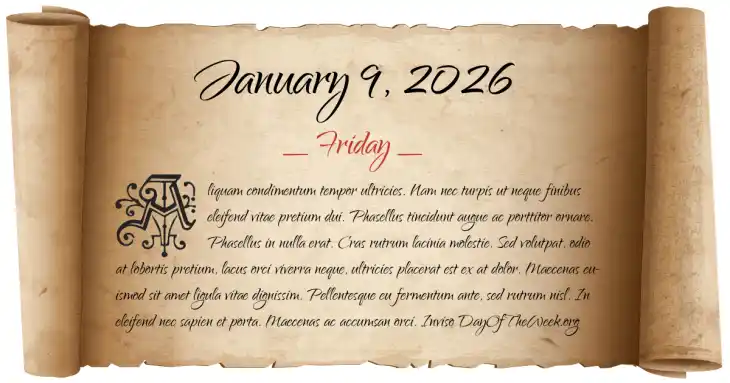 January 9, 2026
— Friday —
Aliquam condimentum tempor ultricies. Nam nec turpis ut neque finibus
eleifend vitae pretium dui. Phasellus tincidunt augue ac porttitor ornare.
Phasellus in nulla erat. Cras rutrum lacinia molestie. Sed volutpat, odio
at lobortis pretium, lacus orci viverra neque, ultricies placerat est ex at dolor. Maecenas eu-
ismod sit amet ligula vitae dignissim. Pellentesque eu fermentum ante, sed rutrum nisl. In
eleifend nec sapien et porta. Maecenas ac accumsan orci. Inviso DayOfTheWeek.org